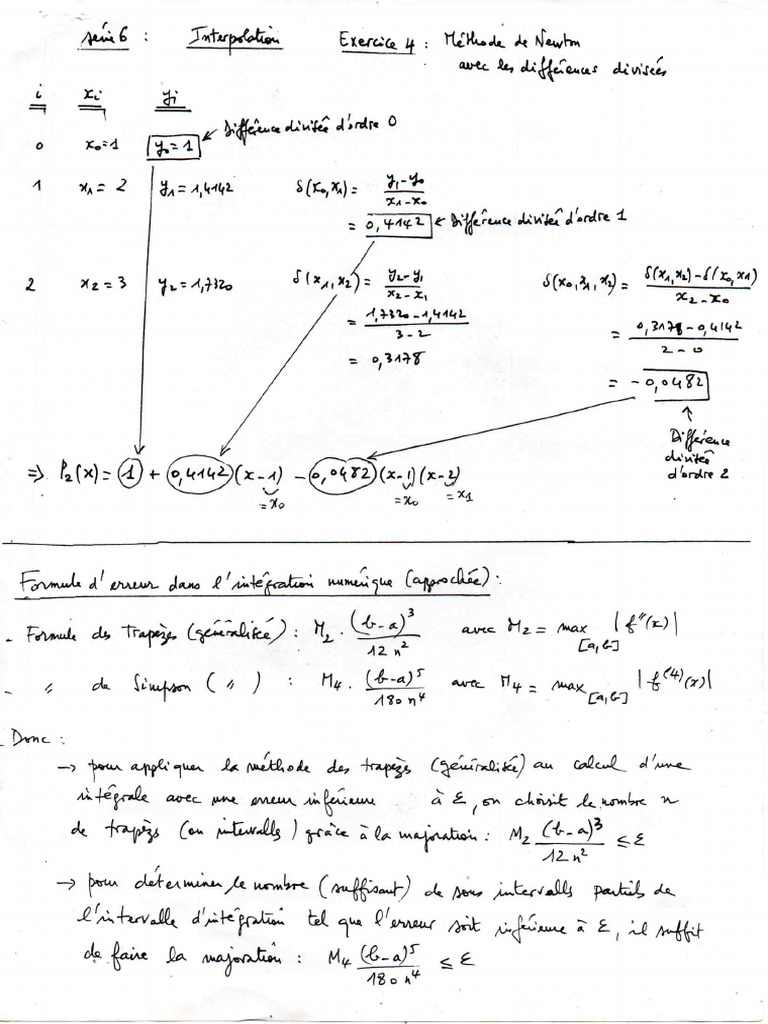 série 6 : Interpolation Exercice 4 : Méthode de Newton
avec les différences divisées
i xi yi
0 x0=1 y0=1 ← Différence divisée d'ordre 0
1 x1=2 y1=1,4142 δ(x0,x1) = (y1-y0)/(x1-x0)
= 0,4142 ← Différence divisée d'ordre 1
2 x2=3 y2=1,7320 δ(x1,x2) = (y2-y1)/(x2-x1) δ(x0,x1,x2) = (δ(x1,x2)-δ(x0,x1))/(x2-x0)
= (1,7320-1,4142)/(3-2) = (0,3178-0,4142)/(2-0)
= 0,3178 = -0,0482
↑
Différence
divisée
d'ordre 2
⇒ P2(x) = 1 + 0,4142 (x-1) - 0,0482 (x-1)(x-2)
=x0 =x0 =x1
Formule d'erreur dans l'intégration numérique (approchée) :
- Formule des Trapèzes (généralisée) : M2 . (b-a)^3/(12 n^2) avec M2 = max[a,b] |f''(x)|
- " de Simpson ( " ) : M4 . (b-a)^5/(180 n^4) avec M4 = max[a,b] |f^(4)(x)|
- Donc :
→ pour appliquer la méthode des trapèzs (généralisée) au calcul d'une
intégrale avec une erreur inférieure à ε, on choisit le nombre n
de trapèzs (ou intervalls) grâce à la majoration : M2 (b-a)^3/(12 n^2) ≤ ε
→ pour déterminer le nombre (suffisant) de sous intervalls partiels de
l'intervalle d'intégration tel que l'erreur soit inférieure à ε, il suffit
de faire la majoration : M4 (b-a)^5/(180 n^4) ≤ ε